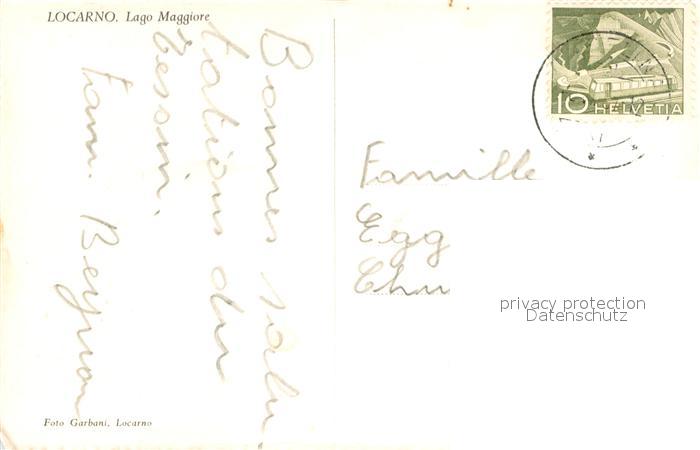 LOCARNO. Lago Maggiore
Bonnes salu
tations du
Tessin.
Fam. Beynon
Famille
Egg
Chn
10 HELVETIA
privacy protection
Datenschutz
Foto Garbani, Locarno